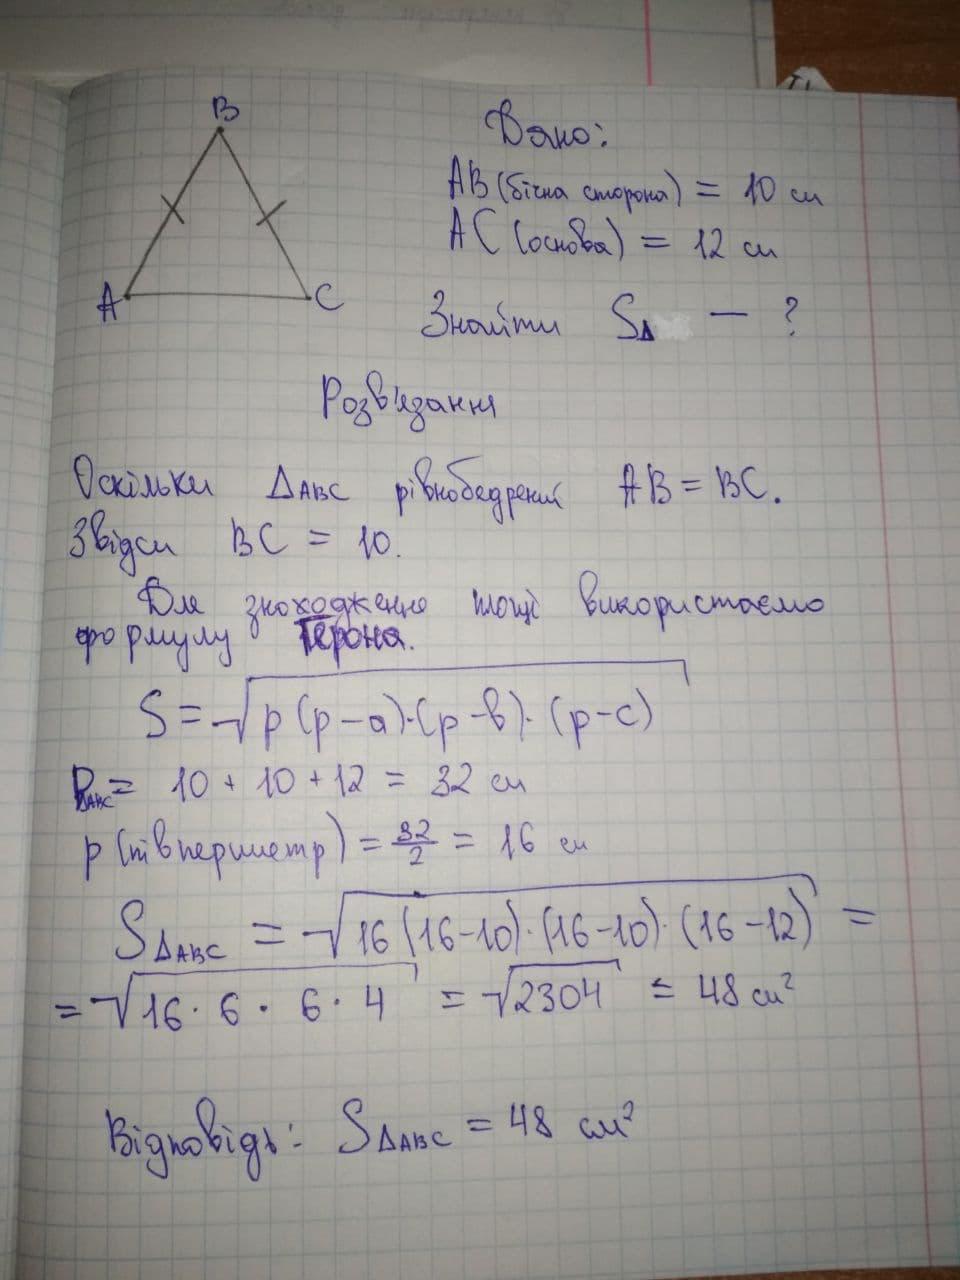 B
A
C
Дано:
AB (бічна сторона) = 10 см
AC (основа) = 12 см
Знайти S∆ — ?
Розв'язання
Оскільки ∆ABC рівнобедрений AB = BC.
Звідси BC = 10.
Для знаходження площі використаємо
формулу Герона.
S = √p(p-a)·(p-в)·(p-c)
P∆ABC = 10 + 10 + 12 = 32 см
p (півпериметр) = 32/2 = 16 см
S∆ABC = √16(16-10)·(16-10)·(16-12) =
= √16·6·6·4 = √2304 = 48 см²
Відповідь: S∆ABC = 48 см²